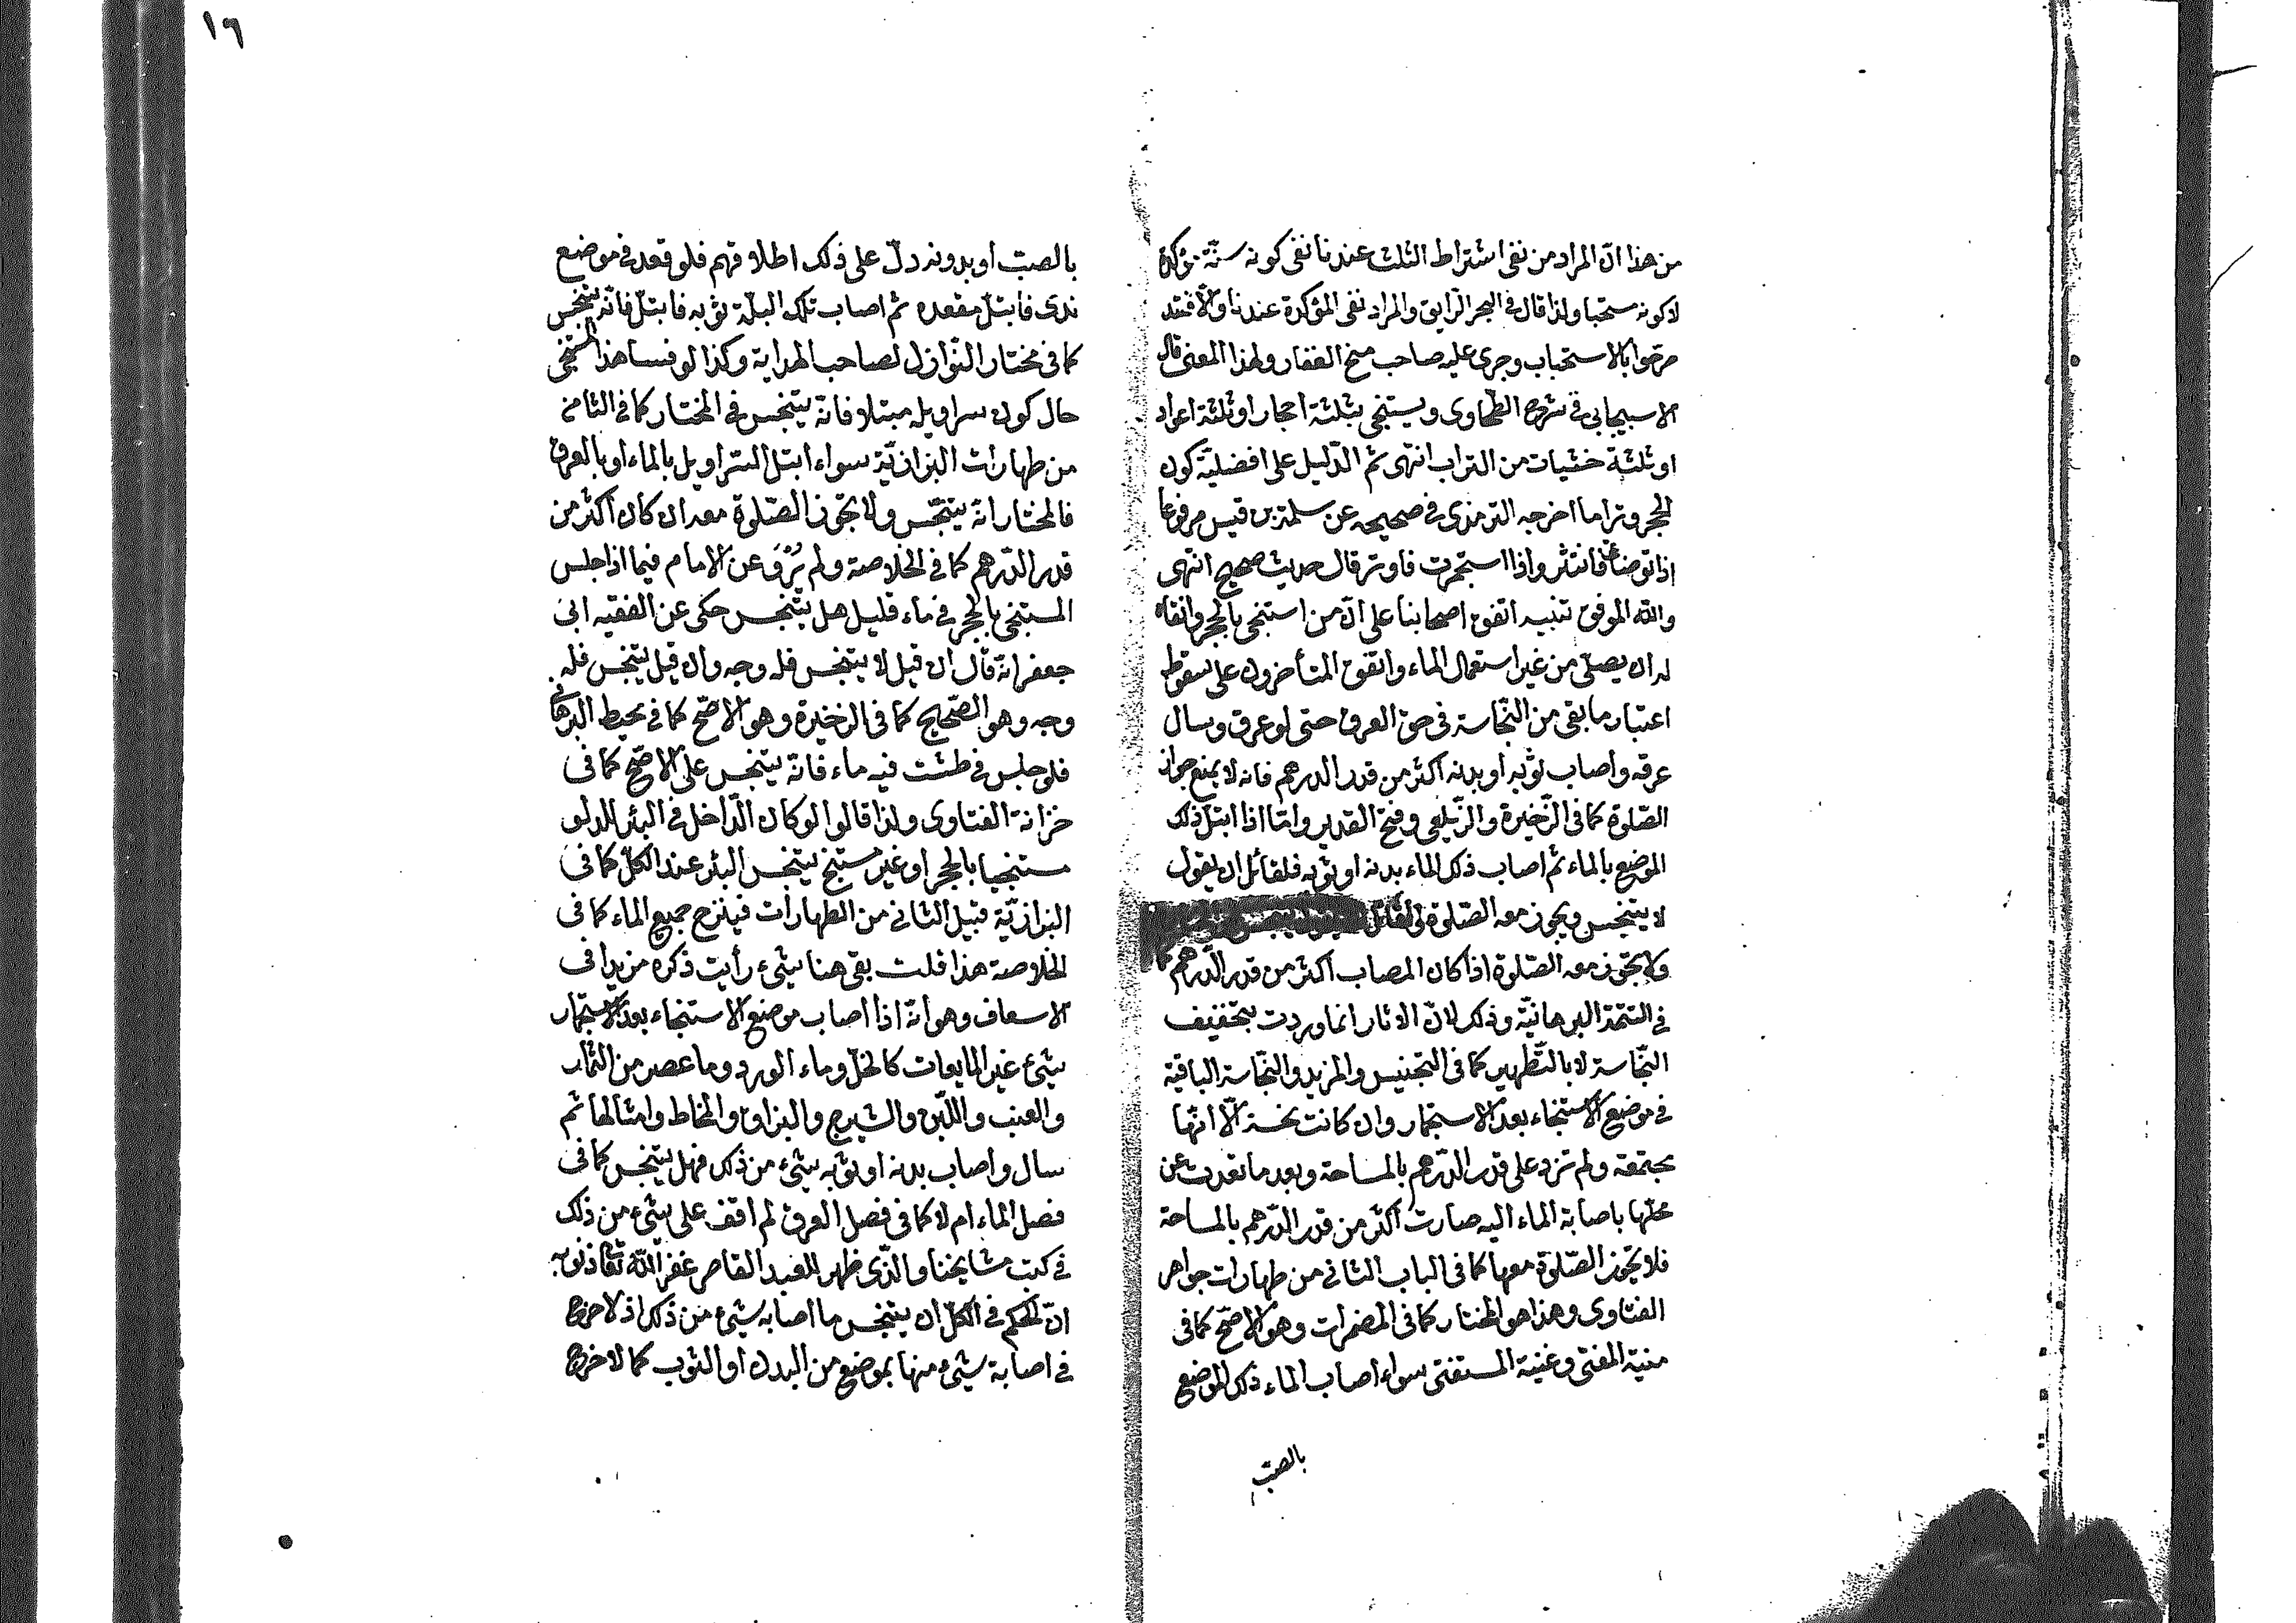 ١٦
من هذا انّ المراد من نفى اشتراط الثلث عندنا نفى كونه سنّة مؤكدة
لا كونه مستحبا ولذا قال فى البحر الرّايق والمراد نفى المؤكدة عندنا والّا فقد
صرّحوا بالاستحباب وجرى عليه صاحب منح الغفار ولهذا المعنى قال
الاسبيجابى فى شرح الطّحاوى ويستنجى بثلثة احجار او ثلثة اعواد
او ثلثة حثيات من التراب انتهى ثم الدّليل على افضليّة كون
الحجر وترا ما اخرجه الترمذى فى صحيحه عن سلمة بن قيس مرفوعا
اذا توضأت فانتثر واذا استجمرت فاوتر قال حديث صحيح انتهى
والله الموفق تنبيه اتفق اصحابنا على انّ من استنجى بالحجر وانقاه
له ان يصلّى من غير استعمال الماء واتفق المتأخرون على سقوط
اعتبار ما بقى من النّجاسة فى حقّ العرق حتى لو عرق وسال
عرقه واصاب ثوبه او بدنه اكثر من قدر الدرهم فانه لا يمنع جواز
الصّلوة كما فى الذّخيرة والزّيلعى وفتح القدير وامّا اذا ابتلّ ذلك
الموضع بالماء ثم اصاب ذلك الماء بدنه او ثوبه فلقائل ان يقول
لا يتنجس ويجوز معه الصّلوة ولقائل
ولا يجوز معه الصّلوة اذا كان المصاب اكثر من قدر الدّرهم كما
فى التتمّة البرهانيّة وذلك لانّ الاثار انما وردت بتخفيف
النّجاسة لا بالتّطهير كما فى التجنيس والمزيد والنّجاسة الباقية
فى موضع الاستنجاء بعد الاستجمار وان كانت نجسة الّا انّها
مجتمعة ولم تزد على قدر الدّرهم بالمساحة وبعد ما تعدت عن
محلّها باصابة الماء اليه صارت اكثر من قدر الدّرهم بالمساحة
فلا يجوز الصّلوة معها كما فى الباب الثانى من طهارات جواهر
الفتاوى وهذا هو المختار كما فى المضمرات وهو الاصّح كما فى
منية المفتى وغنية المستفتى سواء اصاب الماء ذلك الموضع
بالصبّ
بالصبّ او بدونه دلّ على ذلك اطلاقهم فلو قعد فى موضع
ندى فابتلّ مقعده ثم اصاب تلك البلّة ثوبه فابتلّ فانّه يتنجس
كما فى مختار النّوازل لصاحب الهداية وكذا لو فسا هذا المستنجى
حال كون سراويله مبتلا فانّه يتنجس فى المختار كما فى الثامن
من طهارات البزازيّة سواء ابتل السّراويل بالماء او بالعرق
فالمختار انّه يتنجّس ولا تجوز الصّلوة معه ان كان اكثر من
قدر الدّرهم كما فى الخلاصة ولم يُرْوَ عن الامام فيما اذا جلس
المستنجى بالحجر فى ماء قليل هل يتنجس حكى عن الفقيه ابى
جعفر انّه قال ان قيل لا يتنجس فله وجه وان قيل يتنجس فله
وجه وهو الصّحيح كما فى الذخيرة وهو الاصّح كما فى محيط البرهانى
فلو جلس فى طشت فيه ماء فانّه يتنجس على الاصّح كما فى
خزانة الفتاوى ولذا قالوا لو كان الدّاخل فى البئر للدلو
مستنجيا بالحجر او غير مستنج يتنجس البئر عند الكلّ كما فى
البزازيّة قبيل الثانى من الطهارات فينزح جميع الماء كما فى
الخلاصة هذا قلت بقى هنا شئ رأيت ذكره مزيدا فى
الاسعاف وهو انّه اذا اصاب موضع الاستنجاء بعد الاستجمار
شئ غير المايعات كالخلّ وماء الورد وما عصر من الثمار
والعنب واللّبن والشيرج والبزاق والمخاط وامثالها ثم
سال واصاب بدنه او ثوبه شئ من ذلك فهل يتنجس كما فى
فصل الماء ام لا كما فى فصل العرق لم اقف على شئ من ذلك
فى كتب مشايخنا والذى ظهر للعبد القاصر غفر الله تعا ذنوبه
انّ الحكم فى الكلّ ان يتنجس ما اصابه شئ من ذلك اذ لا حرج
فى اصابة شئ منها بموضع من البدن او الثوب كما لا حرج